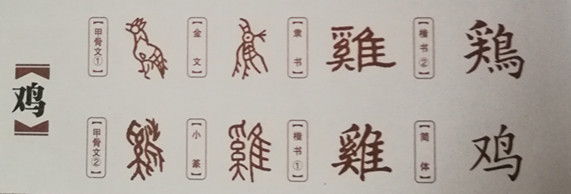 鸡
甲骨文① 金文 隶书 雞 楷书② 鶏
甲骨文② 小篆 雞 楷书① 雞 简体 鸡